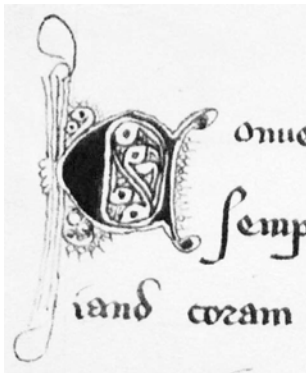 onue
ſemp
iand coram